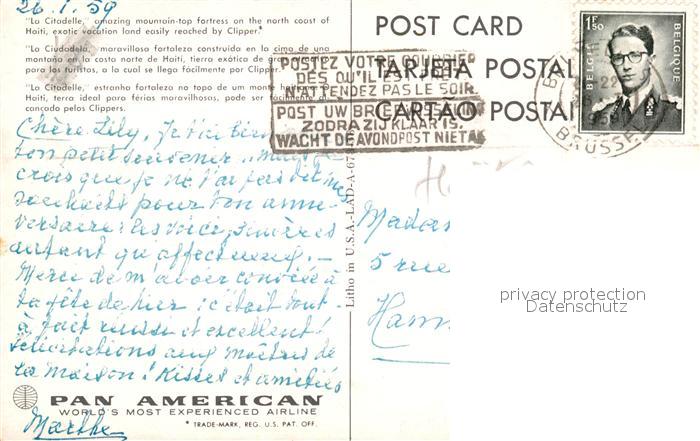 26.1.59
"La Citadelle," amazing mountain-top fortress on the north coast of
Haiti, exotic vacation land easily reached by Clipper.*
"La Ciudadela," maravillosa fortaleza construida en la cima de una
montaña en la costa norte de Haiti, tierra exótica de
para los turistas, a la cual se llega fácilmente por Clipper.
"La Citadelle," estranha fortaleza no topo de um monte
Haiti, terra ideal para férias maravilhosas, pode ser facilmente
cançado pelos Clippers.
POST CARD
TARJETA POSTAL
CARTAO POSTAL
POSTEZ VOTRE COURRIER
DES QU'IL EST PRET
N'ATTENDEZ PAS LE SOIR
POST UW BRIEFWISSELING
ZODRA ZIJ KLAAR IS.
WACHT DE AVONDPOST NIET AF
1F50
BELGIE BELGIQUE
BRUSSEL
Chère Lily, Je t'ai bien
ton petit souvenir
crois que je ne t'ai pas dit mes
souhaits pour ton anni-
versaire: les voici, sincères
autant qu'affectueux. -
Merci de m'avoir conviée à
ta fête de hier: c'était tout-
à fait réussi et excellent!
félicitations aux maîtres de
la maison! Kisses et amitiés
Marthe
Litho in U.S.A.-LAD-A-67
Madame
5 rue
Hann
PAN AMERICAN
WORLD'S MOST EXPERIENCED AIRLINE
* TRADE-MARK, REG. U.S. PAT. OFF.
privacy protection
Datenschutz